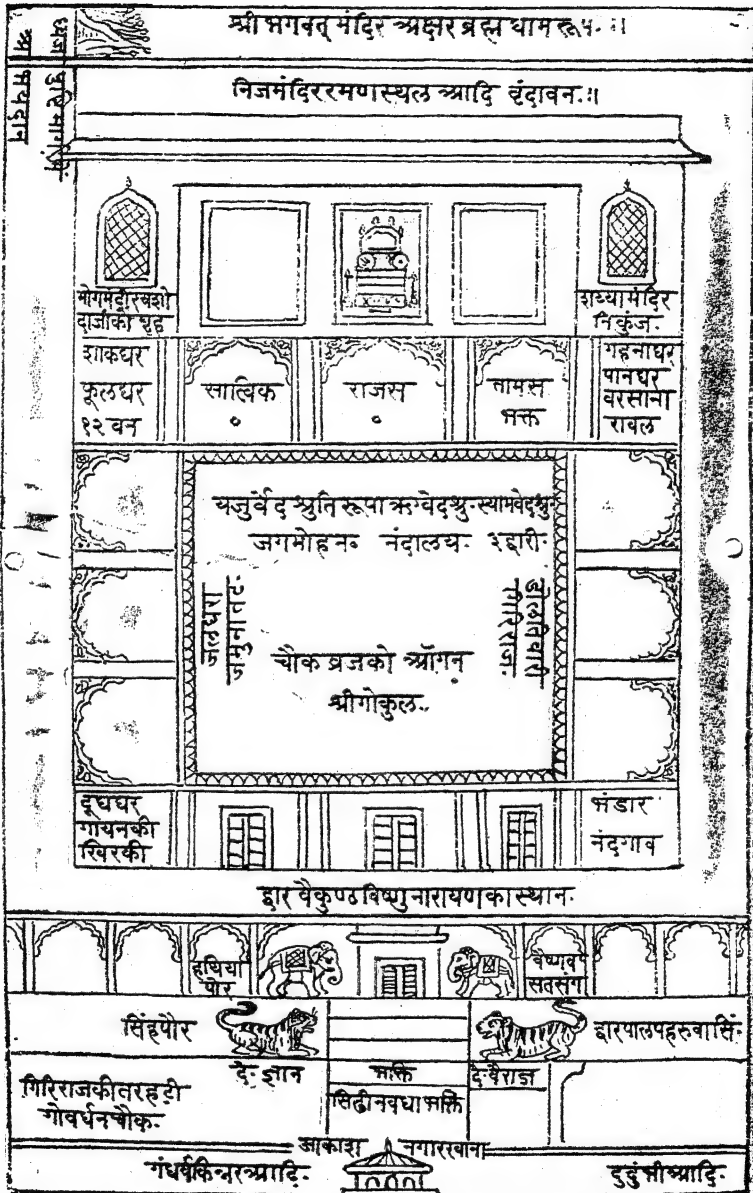 श्री भगवत् मंदिर अक्षर ब्रह्म धाम रूप ॥
ध्वजा
पुष्टि मार्ग
निजमंदिर रमणस्थल आदि वृंदावन ॥
भोगमंदीर यशो
दाजीको गृह
शय्या मंदिर
निकुंज
शाकघर
फूलघर
१२ वन
सात्विक
राजस
तामस
भक्त
गहनाघर
पानघर
बरसाना
रावल
यजुर्वेद श्रुति रूपा ऋग्वेद श्रु स्यामवेद श्रु
जगमोहन नंदालय २द्वारी
जलघरा
जमुनातट
डोलतिबारी
गिरिराज
चौक व्रजको आँगन
श्रीगोकुल
दूधघर
गायनकी
खिरकी
भंडार
नंदगाव
द्वार वैकुण्ठ विष्णु नारायण का स्थान
हथिया
पोर
वैष्णव
सतसंग
सिंहपौर
द्वारपाल पहरुवा सिं
दे ज्ञान
भक्ति
दे वैराज्ञ
गिरिराजकी तरहटी
गोवर्धन चौक
सिढी नवधा भक्ति
आकाश नगारखाना
गंधर्व किन्नर आदि
दुदुंभी आदि